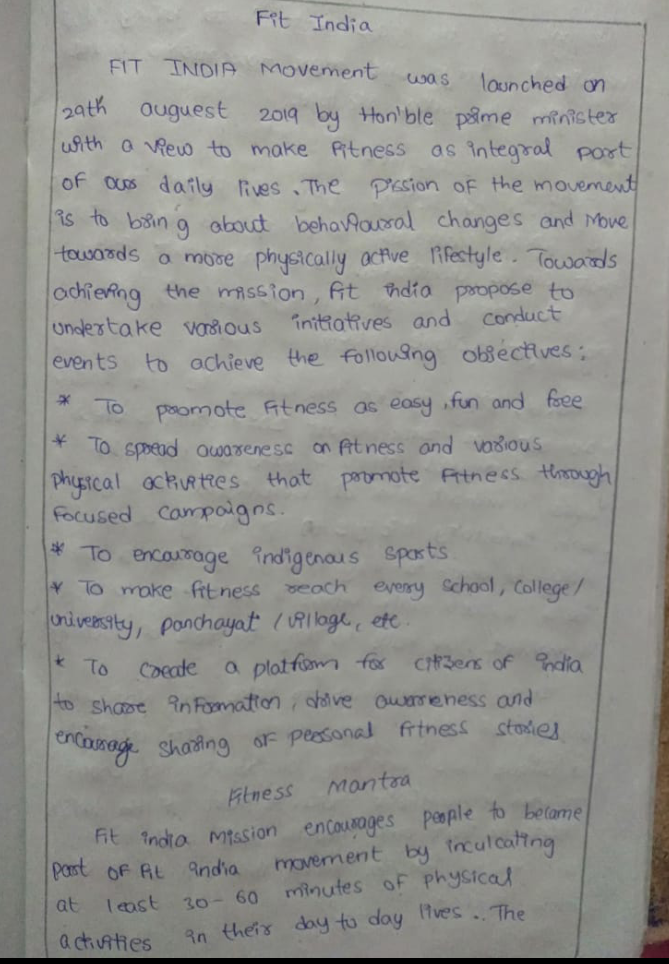 Fit India
FIT INDIA Movement was launched on
29th auguest 2019 by Hon'ble prime minister
with a view to make fitness as integral part
of our daily lives. The pission of the movement
is to bring about behavioural changes and Move
towards a more physically active lifestyle. Towards
achieving the mission, fit india propose to
undertake various initiatives and conduct
events to achieve the following objectives:
* To promote fitness as easy, fun and free
* To spread awareness on fitness and various
physical activities that promote fitness through
focused campaigns.
* To encourage indigenous sports
* To make fitness reach every school, college/
university, panchayat / village, etc.
* To create a platform for citizens of india
to share information, drive awareness and
encourage sharing of personal fitness stories
Fitness Mantra
Fit india Mission encourages people to became
part of fit india movement by inculcating
at least 30-60 minutes of physical
activities in their day to day lives.. The